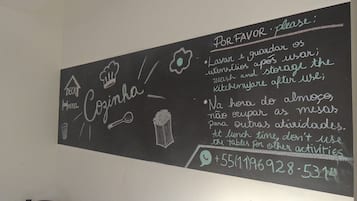 Cozinha
POR FAVOR - please:
• Lavar e guardar os
utensílios após usar;
Wash and storage the
kitchenware after use;
• Na hora do almoço
não ocupar as mesas
para outras atividades.
At lunch time, don't use
the tables for other activities
+55(11)96928-5314